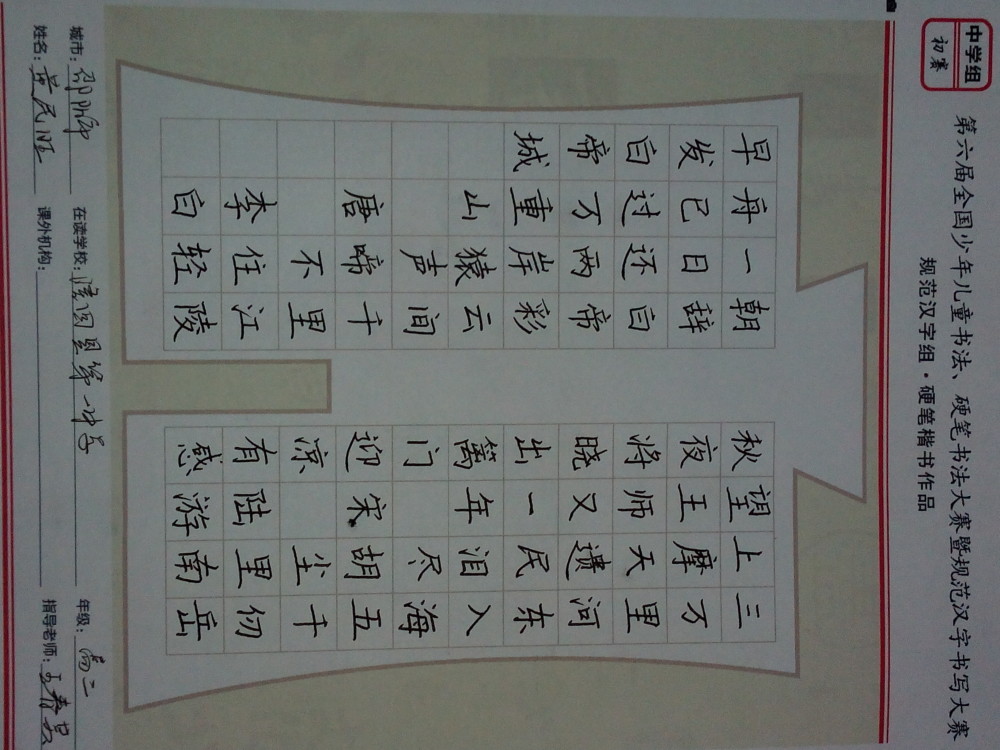 中学组
初赛
第六届全国少年儿童书法、硬笔书法大赛暨规范汉字书写大赛
规范汉字组·硬笔楷书作品
三万里河东入海五千仞岳
上摩天遗民泪尽胡尘里南
望王师又一年 宋 陆游
秋夜将晓出篱门迎凉有感
朝辞白帝彩云间千里江陵
一日还两岸猿声啼不住轻
舟已过万重山 唐 李白
早发白帝城
城市：邵阳市 在读学校：隆回县第一中学 年级：高二
姓名： 课外机构： 指导老师：